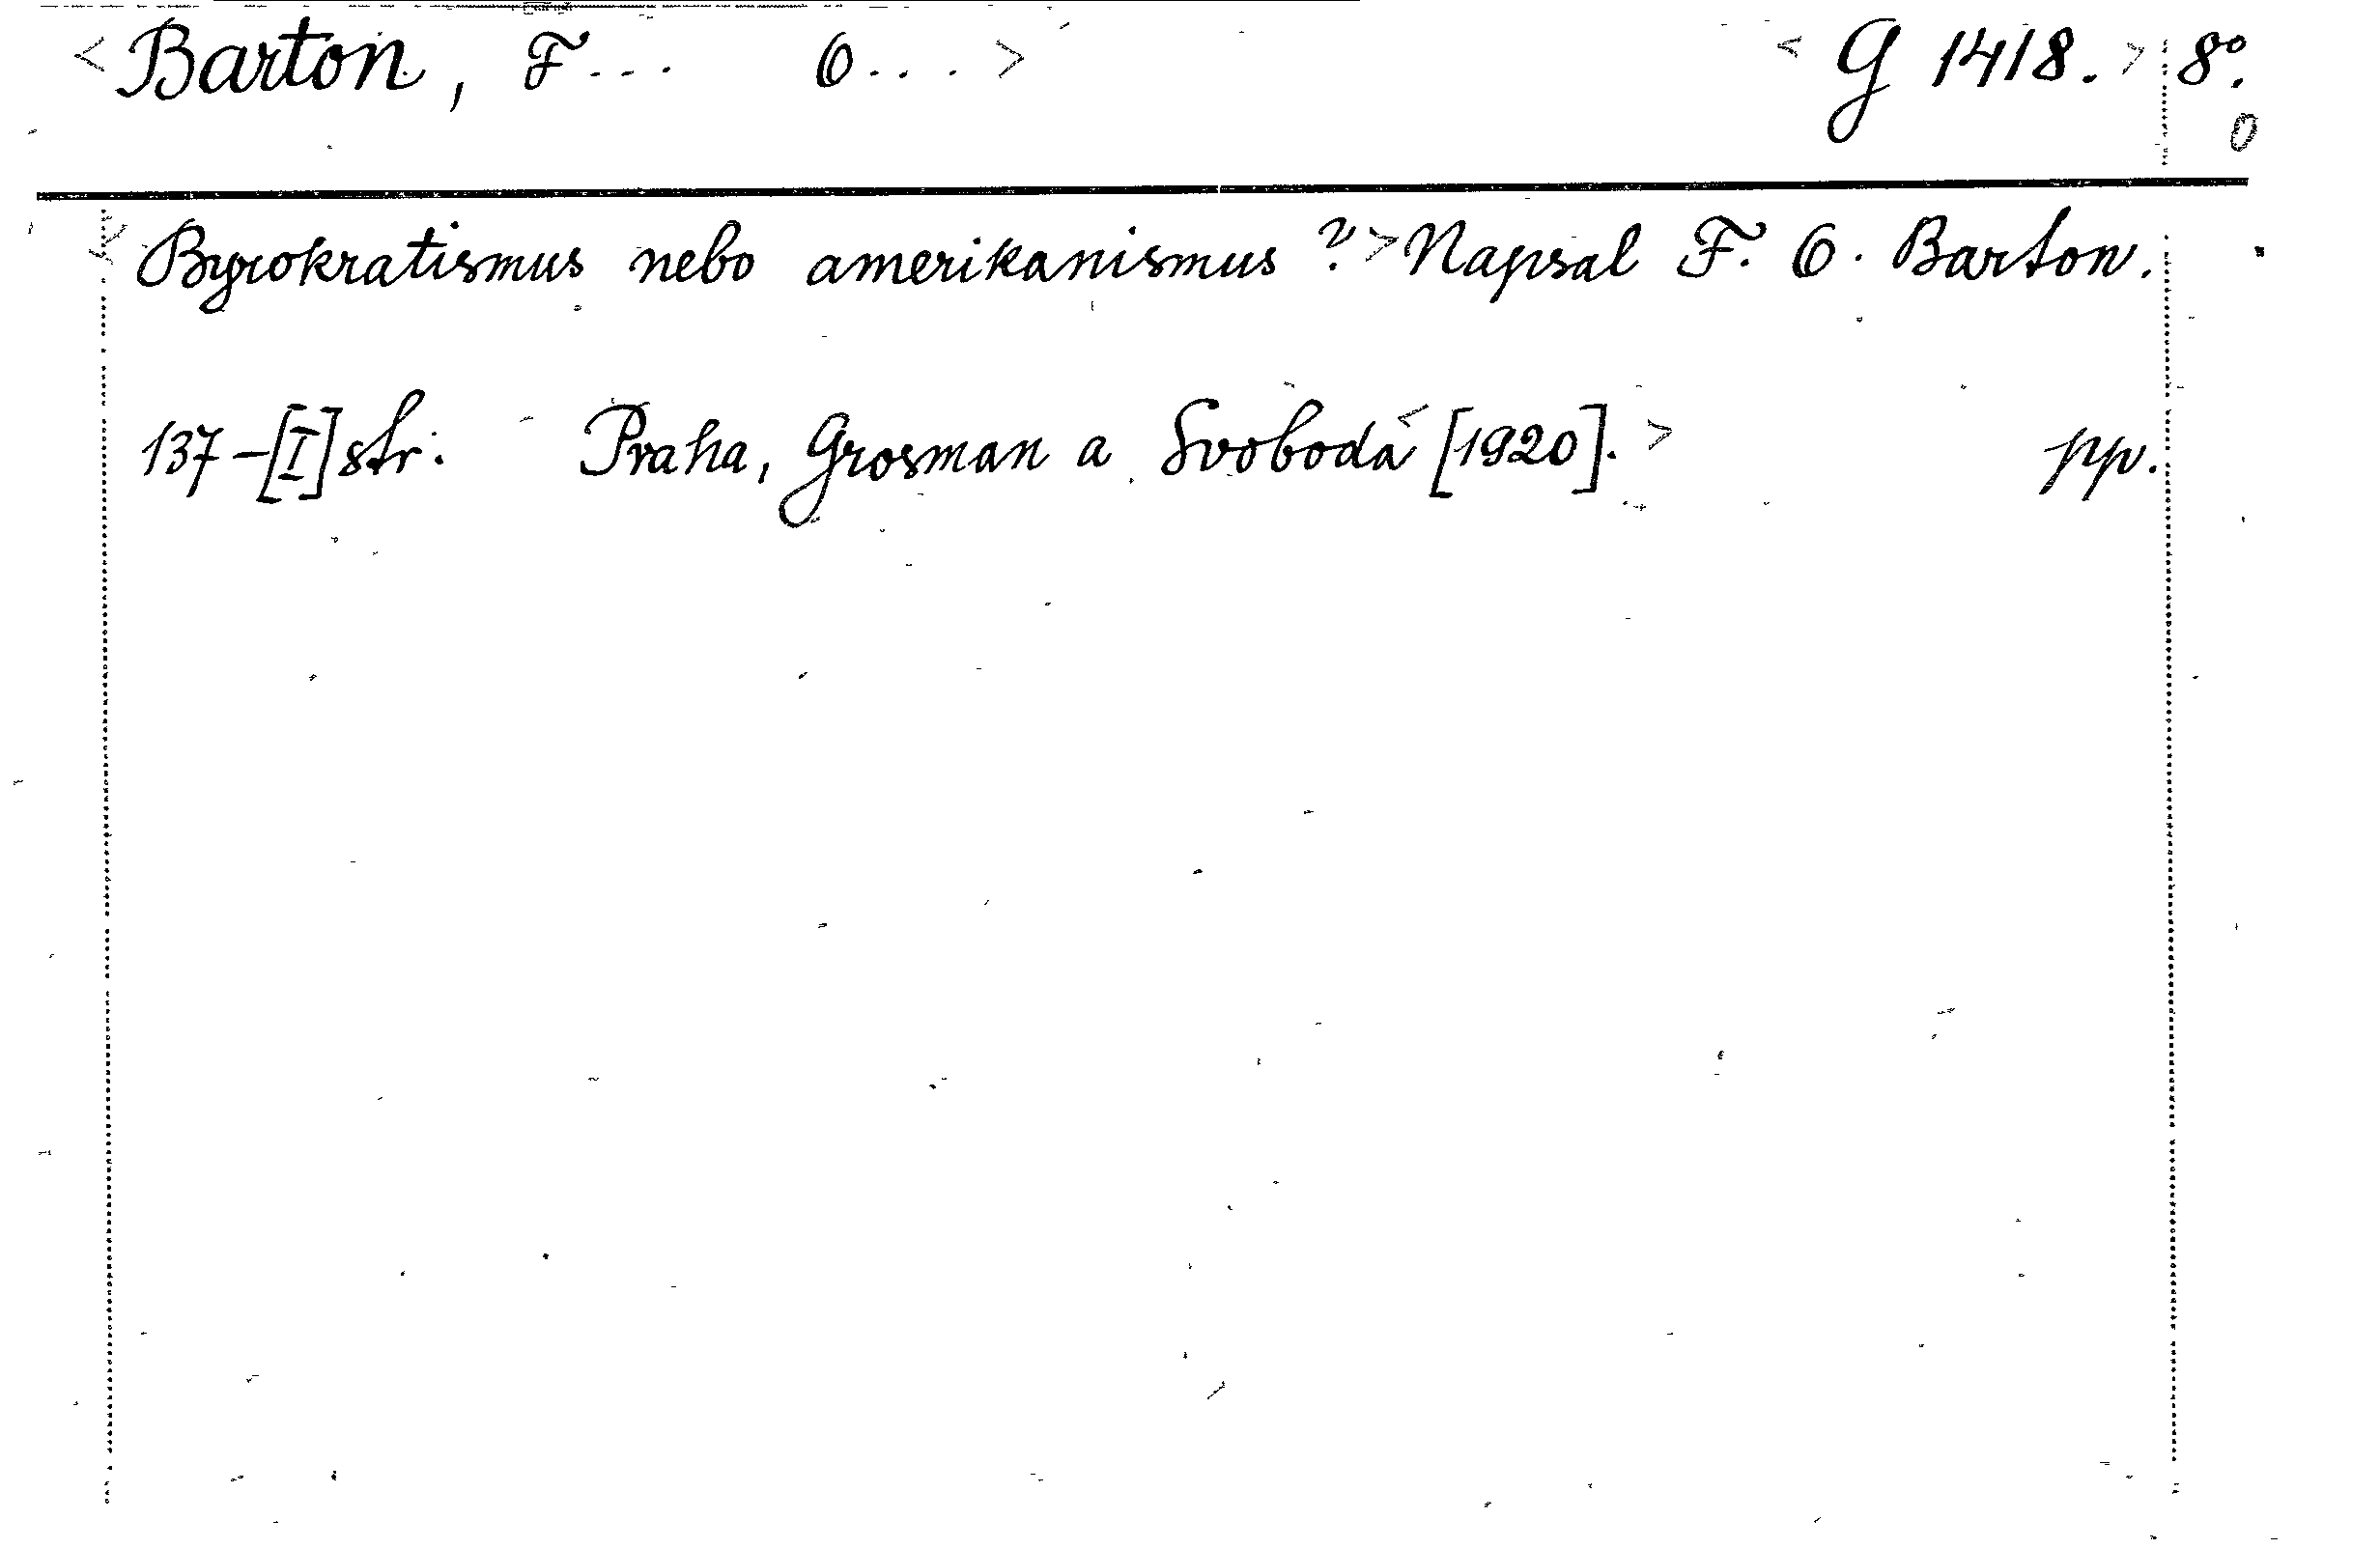 < Barton, F... O... > < G 1418. > 8°.
0
< Byrokratismus nebo amerikanismus? > Napsal F. O. Barton.
137-[I] str. Praha, Grosman a Svoboda < [1920]. > pp.